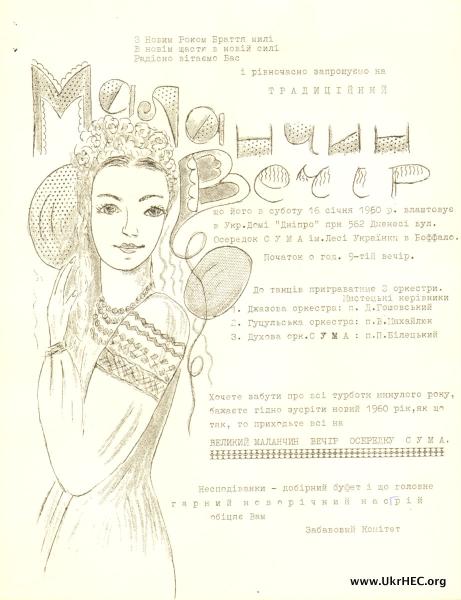 З Новим Роком Браття милі
В новім щастя в новій силі
Радісно вітаємо Вас
і рівночасно запрошуємо на
Т Р А Д И Ц І Й Н И Й
Маланчин
Вечір
що його в суботу 16 січня 1960 р. влаштовує
в Укр.Домі "Дніпро" при 562 Дженесі вул.
Осередок С У М А ім.Лесі Українки в Боффало.
Початок о год. 9-тій вечір.
До танців приграватиме 3 оркестри.
Мистецькі керівники
1. Джазова оркестра: п. Д.Гошовський
2. Гуцульська оркестра: п.В.Михайлюк
3. Духова орк.С У М А : п.П.Білецький
Хочете забути про всі турботи минулого року,
бажаєте гідно зустріти новий 1960 рік,як що
так, то приходьте всі на
ВЕЛИКИЙ МАЛАНЧИН ВЕЧІР ОСЕРЕДКУ С У М А.
Несподіванки - добірний буфет і що головне
г а р н и й н о в о р і ч н и й н а с т р і й
обіцяє Вам
Забавовий Комітет
www.UkrHEC.org